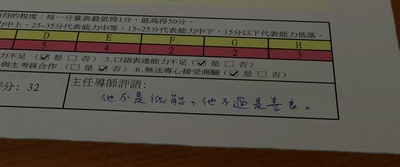 得的程度：每一分量表最低得1分，最高得50分。
力中上，25~35分代表能力中等，15~25分代表能力中下，15分以下代表能力低落。
D E F G H
5 4 2 2 3
力不足（☑是 □否）3.口語表達能力不足（☑是 □否）
與主考員合作（□是 ☑否）6.無法專心接受測驗（☑是 □否）
分：32
主任導師評語：
他不是低能，他不過是善良。